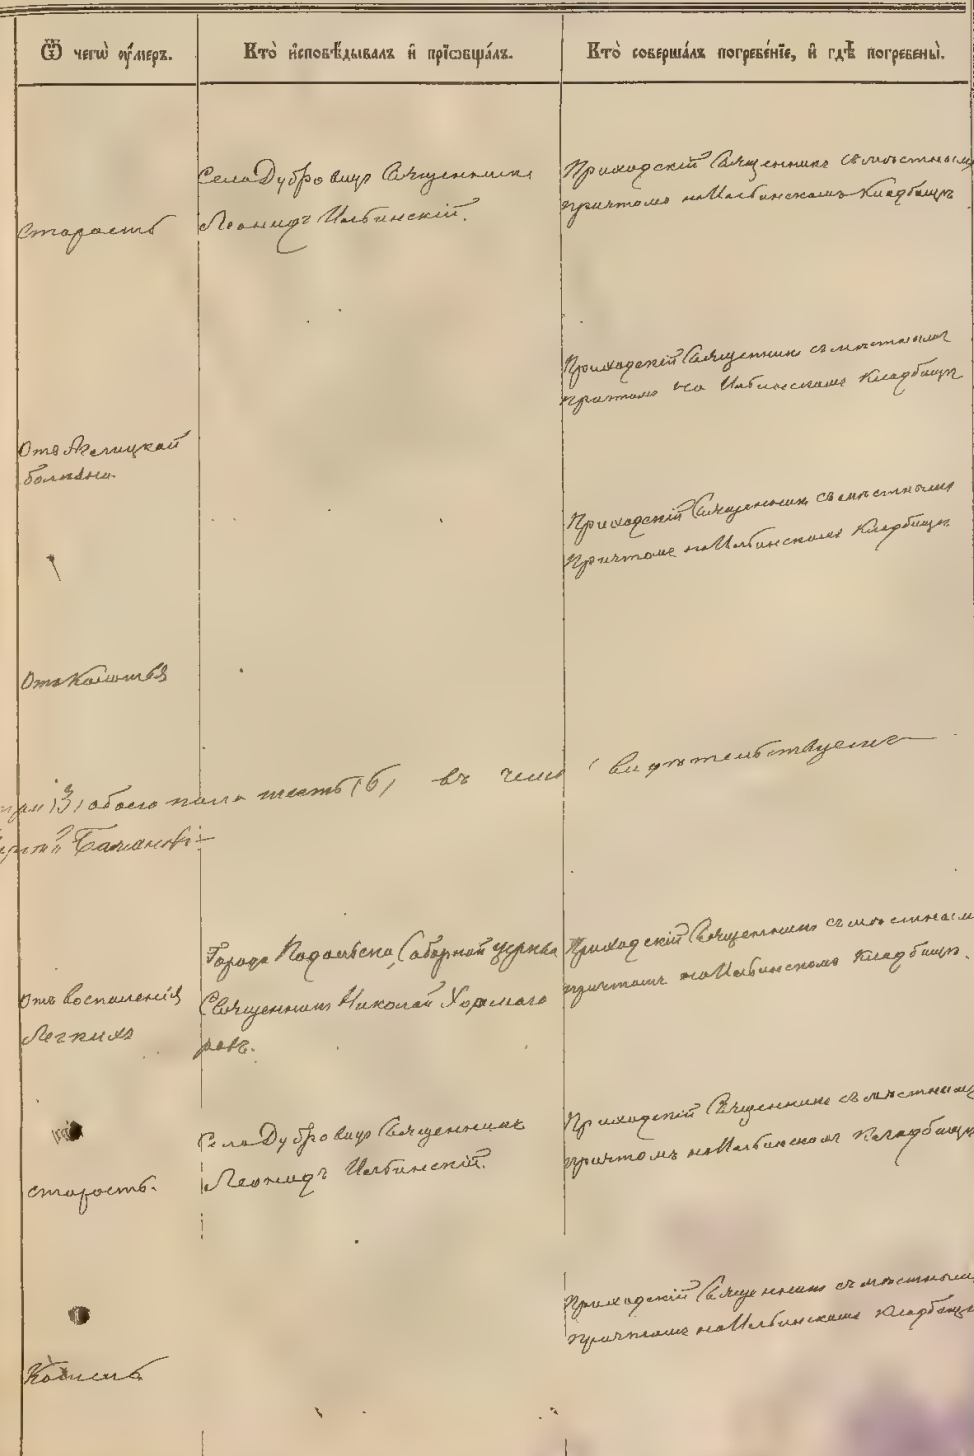 Ѿ чегѡ ᲂу҆́меръ.
Кто̀ и҆сповѣ́дывалъ и҆ прїѡбща́лъ.
Кто̀ соверша́лъ погребе́нїе, и҆ гдѣ̀ погребены̀.
Старость
Села Дубровицъ Священникъ
Леонидъ Ильинскій.
Приходскій Священникъ съ мѣстнымъ
причтомъ на Кладбищѣ
Приходскій Священникъ съ мѣстнымъ
причтомъ на Кладбищѣ
Отъ
болѣзни.
Приходскій Священникъ съ мѣстнымъ
Причтомъ на Кладбищѣ
Отъ
три (3) обоего пола шесть (6) въ чемъ свидѣтельствуемъ
Отъ воспаленія
Легкихъ
Города Подольска Соборной церкви
Священникъ Николай
ровъ.
Приходскій Священникъ съ мѣстнымъ
причтомъ на Кладбищѣ.
старость.
Села Дубровицъ Священникъ
Леонидъ Ильинскій.
Приходскій Священникъ съ мѣстнымъ
причтомъ на Кладбищѣ
Приходскій Священникъ съ мѣстнымъ
причтомъ на Кладбищѣ